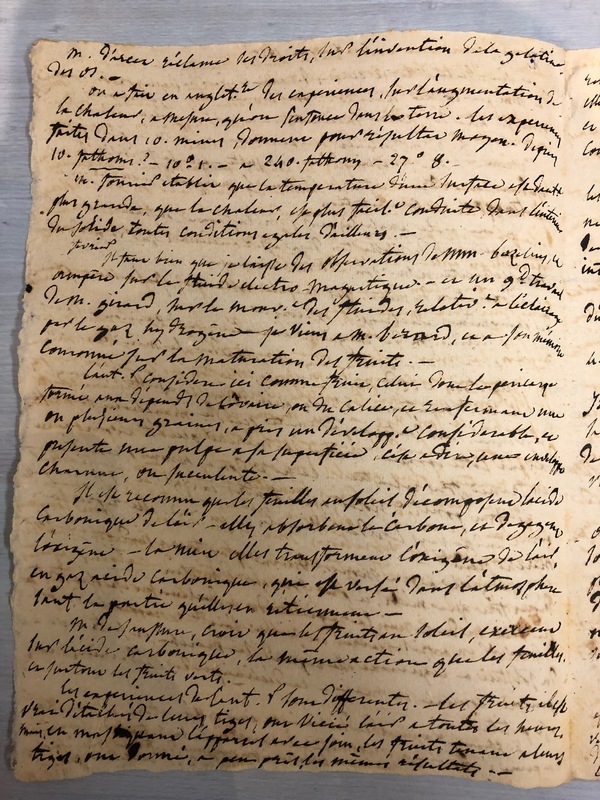 m. d'arcet réclame des droits, sur l'invention de la gelatine
des os. —
on a fait en anglet.re des experiences, sur l'augmentation de
la chaleur, a mesure, qu'on s'enfonce dans la terre. les experiences
faites dans 10. mines donnent pour résultat moyen. depuis
10. fathoms — 10° 1. — a 240. fathoms — 27° 8. —
m. fourier établit que la temperature d'une surface est d'autant
plus grande, que la chaleur, est plus facil.t conduite dans l'intérieur
du solide, toutes conditions egales d'ailleurs. —
Il faut bien que je laisse des observations de mm. berzelius, et
ampère sur le fluide electro-magnetique. — et un gd. travail
de m. girard, sur le mouv.t des fluides, relativ.t a l'éclairage
par le gaz hydrogène — je viens a m. berard, et a son mémoire
couronné sur la maturation des fruits. —
L'aut.r considère ici comme fruit, celui dont le pericarpe
formé aux dépends de l'ovaire, ou du calice, et renfermant une
ou plusieurs graines, a pris un développ.t considérable, et
presente une pulpe a sa superficie, c'est a dire, une enveloppe
charnue, ou succulente. —
Il est reconnu que les feuilles au soleil décomposent l'acide
carbonique de l'air — elles absorbent le carbone, et dégagent
l'oxigène — la nuit elles transforment l'oxigène de l'air
en gaz acide carbonique, qui est versé dans l'atmosphère
sauf la partie qu'elles en retiennent —
m. de saussure, croit que les fruits au soleil, exercent
sur l'acide carbonique, la même action que les feuilles.
et surtout les fruits verts.
les experiences de l'aut.r sont differentes. — les fruits, il est
vrai détachés de leurs tiges, ont vicié l'air a toutes les heures
mais, en masquant l'appareil avec soin, les fruits tenant a leurs
tiges, ont donné, a peu près, les mêmes résultats —